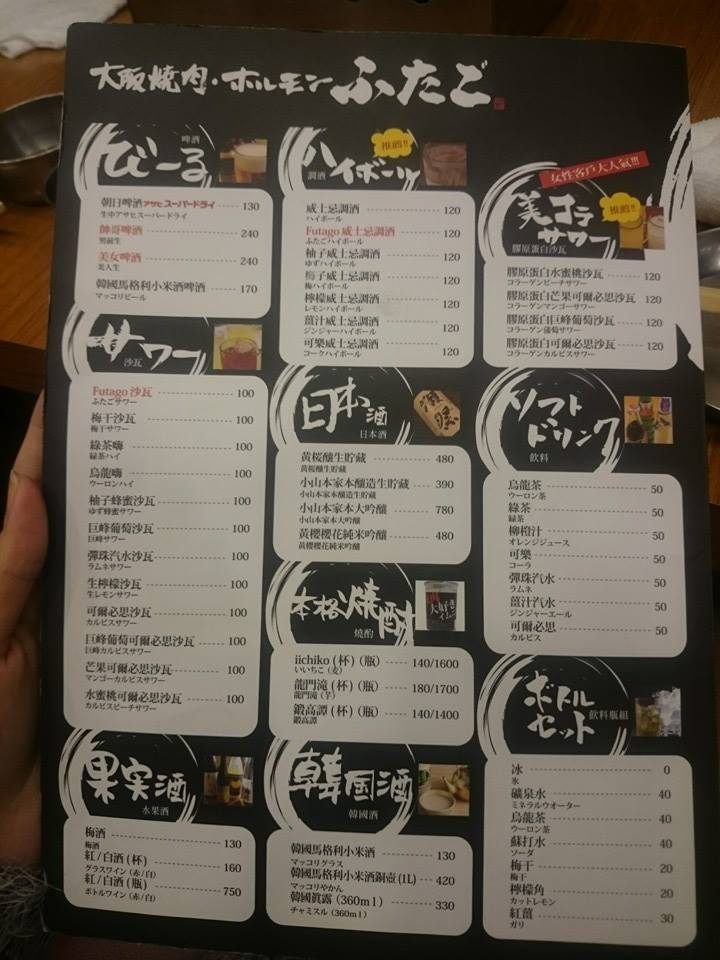 大阪焼肉・ホルモン ふたご
びーる
啤酒
朝日啤酒アサヒスーパードライ 130
生中アサヒスーパードライ
帥哥啤酒 240
男前生
美女啤酒 240
美人生
韓國馬格利小米酒啤酒 170
マッコリビール
サワー
沙瓦
Futago 沙瓦 100
ふたごサワー
梅干沙瓦 100
梅干サワー
綠茶嗨 100
緑茶ハイ
烏龍嗨 100
ウーロンハイ
柚子蜂蜜沙瓦 100
ゆず蜂蜜サワー
巨峰葡萄沙瓦 100
巨峰サワー
彈珠汽水沙瓦 100
ラムネサワー
生檸檬沙瓦 100
生レモンサワー
可爾必思沙瓦 100
カルピスサワー
巨峰葡萄可爾必思沙瓦 100
巨峰カルピスサワー
芒果可爾必思沙瓦 100
マンゴーカルピスサワー
水蜜桃可爾必思沙瓦 100
カルピスピーチサワー
果実酒
水果酒
梅酒 130
梅酒
紅/白酒 (杯) 160
グラスワイン (赤/白)
紅/白酒 (瓶) 750
ボトルワイン (赤/白)
ハイボール
調酒
推薦!!
威士忌調酒 120
ハイボール
Futago 威士忌調酒 120
ふたごハイボール
柚子威士忌調酒 120
ゆずハイボール
梅子威士忌調酒 120
梅ハイボール
檸檬威士忌調酒 120
レモンハイボール
薑汁威士忌調酒 120
ジンジャーハイボール
可樂威士忌調酒 120
コークハイボール
日本酒
日本酒
黄桜釀生貯蔵 480
黄桜釀生貯蔵
小山本家本釀造生貯蔵 390
小山本家本釀造生貯蔵
小山本家本大吟釀 780
小山本家本大吟釀
黃櫻櫻花純米吟釀 480
黃櫻櫻花純米吟釀
本格焼酎
燒酌
iichiko (杯) (瓶) 140/1600
いいちこ (麦)
龍門滝 (杯) (瓶) 180/1700
龍門滝 (芋)
鍛高譚 (杯) (瓶) 140/1400
鍛高譚
韓国酒
韓國酒
韓國馬格利小米酒 130
マッコリグラス
韓國馬格利小米酒鍋壺 (1L) 420
マッコリやかん
韓國眞露 (360ml) 330
チャミスル (360ml)
女性客戶大人氣!!!
美コラサワー
膠原蛋白沙瓦
推薦!!
膠原蛋白水蜜桃沙瓦 120
コラーゲンピーチサワー
膠原蛋白芒果可爾必思沙瓦 120
コラーゲンマンゴーサワー
膠原蛋白巨峰葡萄沙瓦 120
コラーゲン葡萄サワー
膠原蛋白可爾必思沙瓦 120
コラーゲンカルピスサワー
ソフトドリンク
飲料
烏龍茶 50
ウーロン茶
綠茶 50
緑茶
柳橙汁 50
オレンジジュース
可樂 50
コーラ
彈珠汽水 50
ラムネ
薑汁汽水 50
ジンジャーエール
可爾必思 50
カルピス
ボトルセット
飲料瓶組
冰 0
氷
礦泉水 40
ミネラルウオーター
烏龍茶 40
ウーロン茶
蘇打水 40
ソーダ
梅干 20
梅干
檸檬角 20
カットレモン
紅薑 30
ガリ